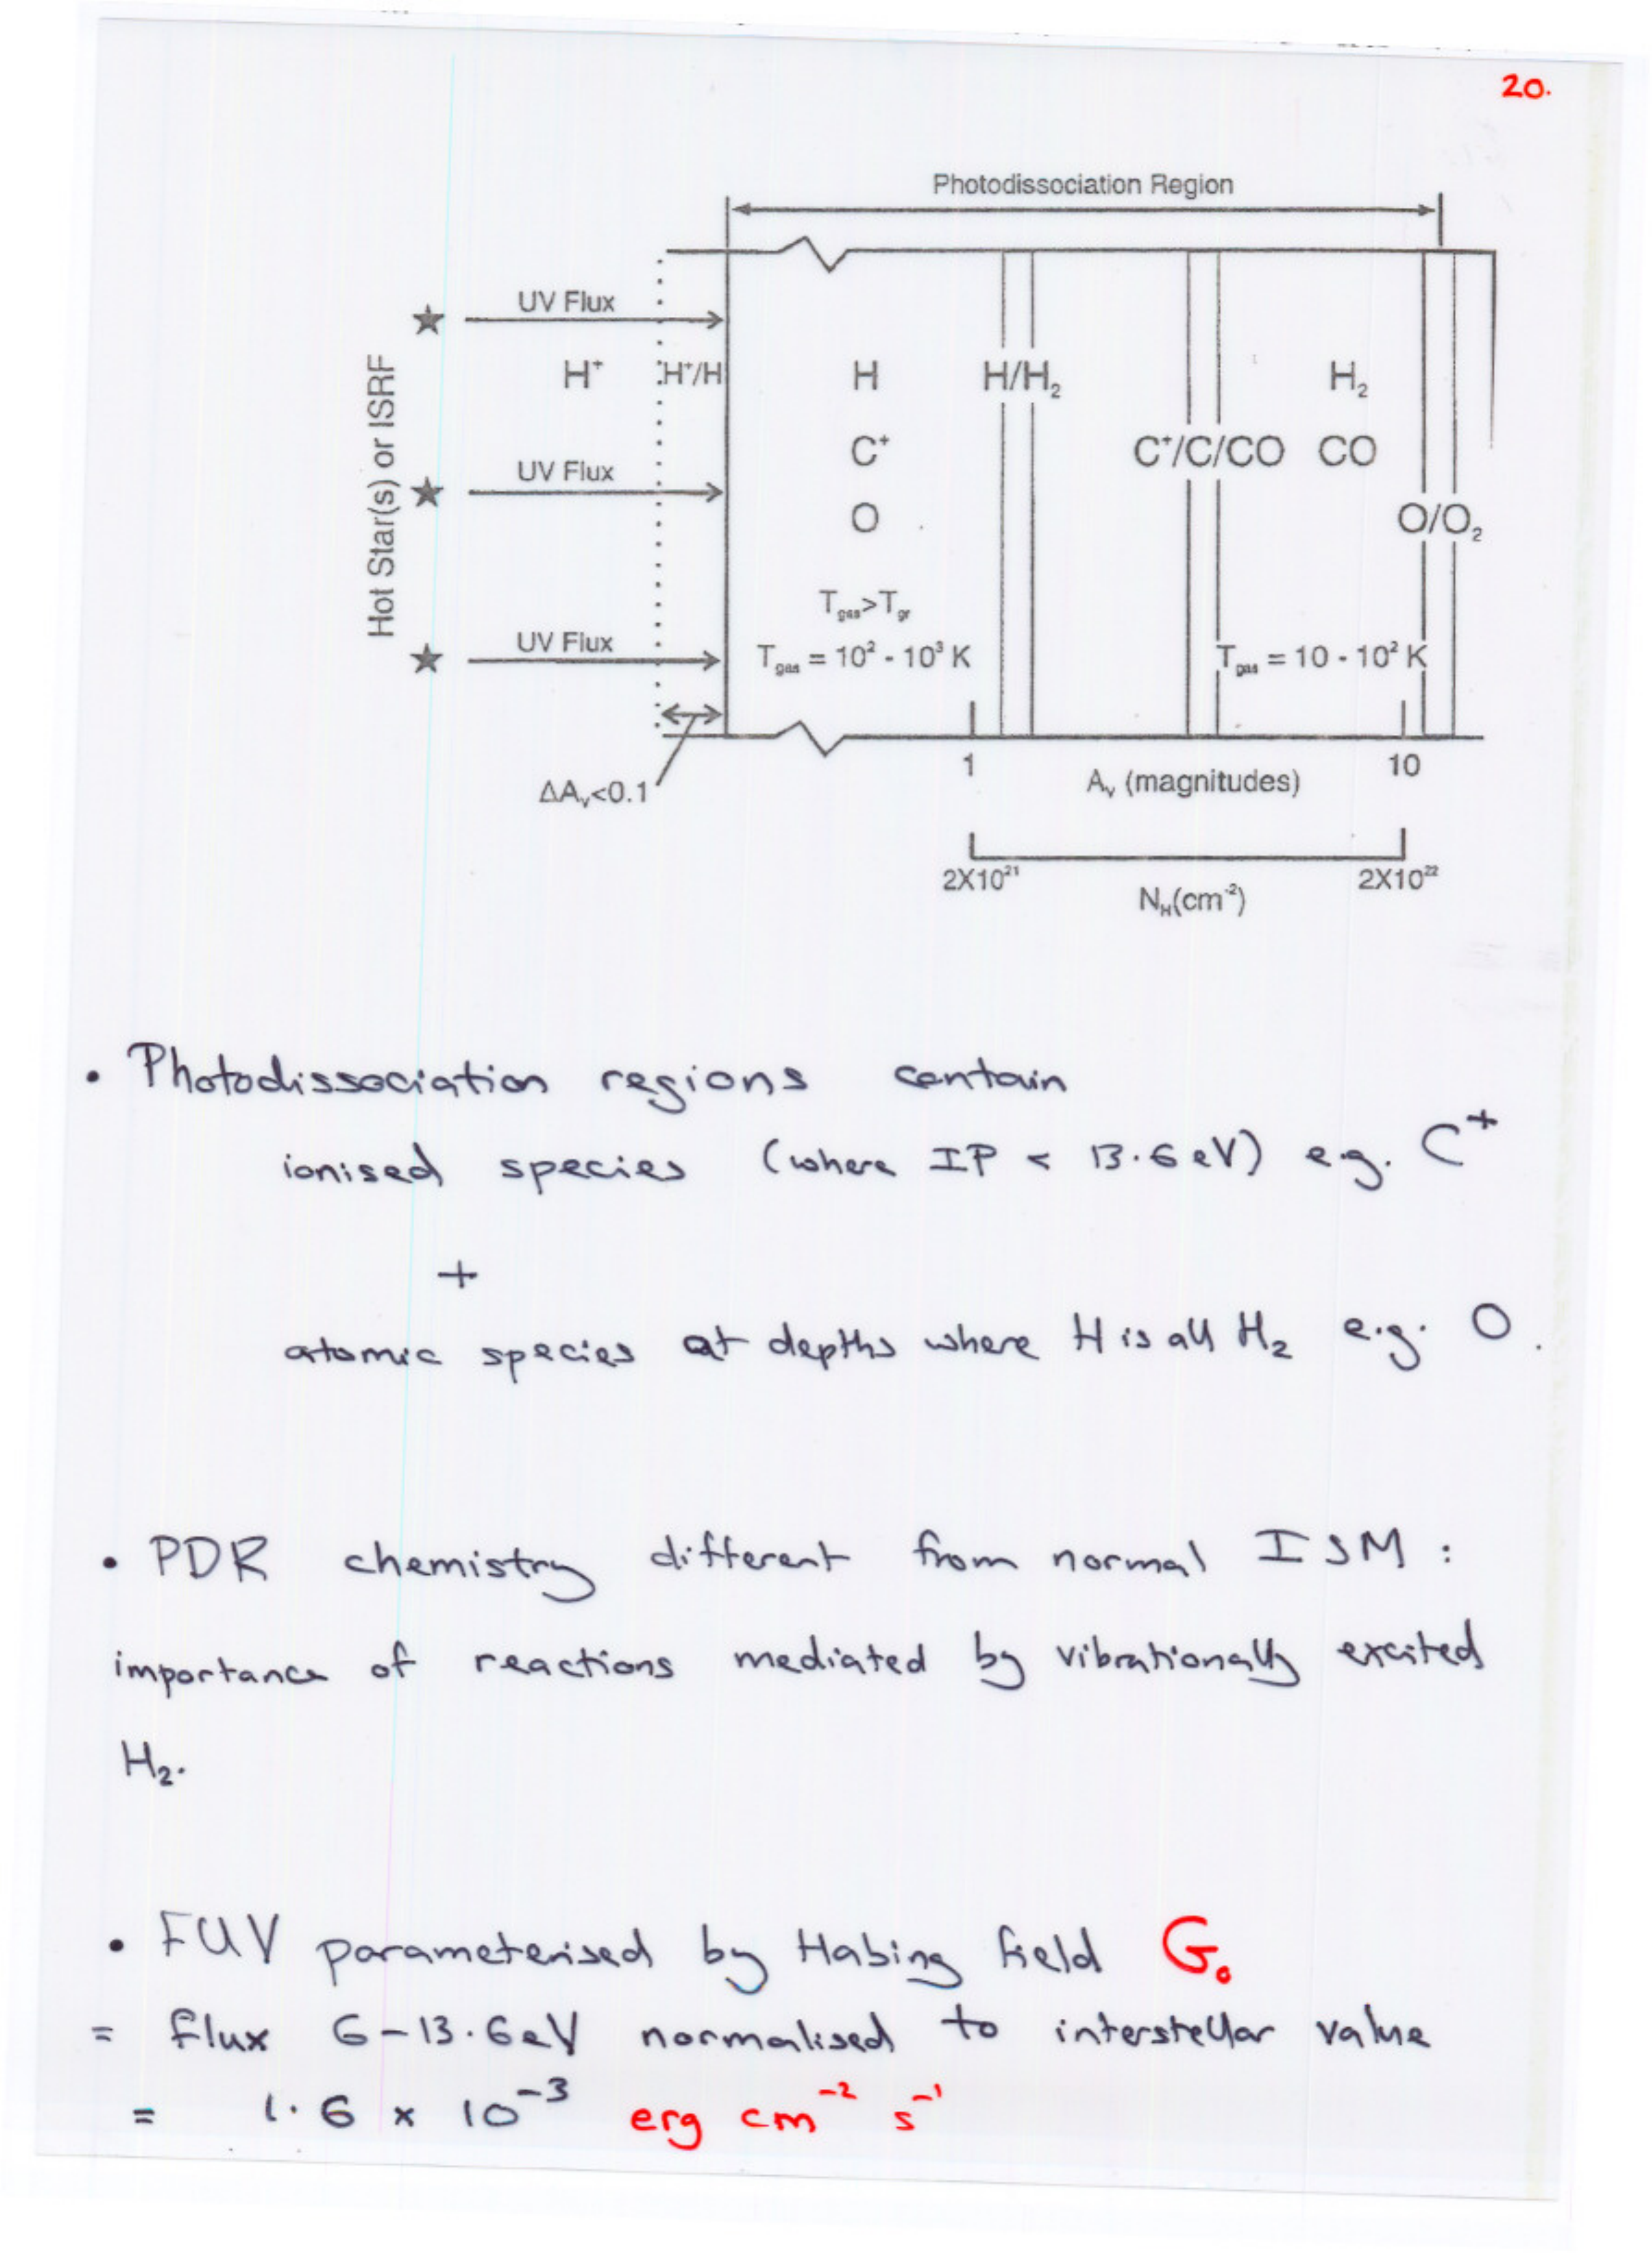 20.
Photodissociation Region
Hot Star(s) or ISRF
UV Flux
H⁺ H⁺/H H H/H₂ H₂
C⁺ C⁺/C/CO CO
UV Flux
O O/O₂
T_gas>T_gr
UV Flux
T_gas = 10² - 10³ K T_gas = 10 - 10² K
1 10
ΔA_v<0.1 A_v (magnitudes)
2X10²¹ 2X10²²
N_H(cm⁻²)
• Photodissociation regions contain
ionised species (where IP < 13.6 eV) e.g. C⁺
+
atomic species at depths where H is all H₂ e.g. O.
• PDR chemistry different from normal ISM :
importance of reactions mediated by vibrationally excited
H₂.
• FUV parameterised by Habing field G₀
= flux 6-13.6eV normalised to interstellar value
= 1.6 × 10⁻³ erg cm⁻² s⁻¹